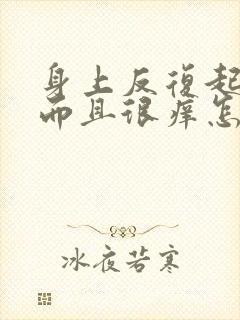 身上反復起
而且很痒怎
冰夜若寒